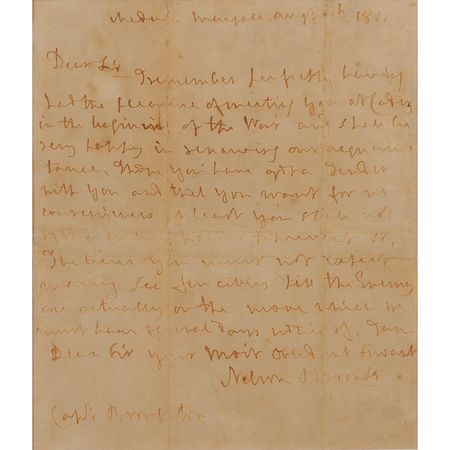 Medusa Margate Augst 1801
Dear Sir I remember perfectly having
had the pleasure of meeting you at Cadiz
in the beginning of the War and shall be
very happy in renewing our acquain
tance, I hope you have got a Tender
with you and that you want for no
conveniences at least you shall not
if it is in my power to prevent it,
The Lieut must not expect
many Sea fencibles till the Enemy
are actually on the move which we
must have several days notice of, I am
Dear Sir your Most Obedient Servant
Nelson & Bronte
Capt.